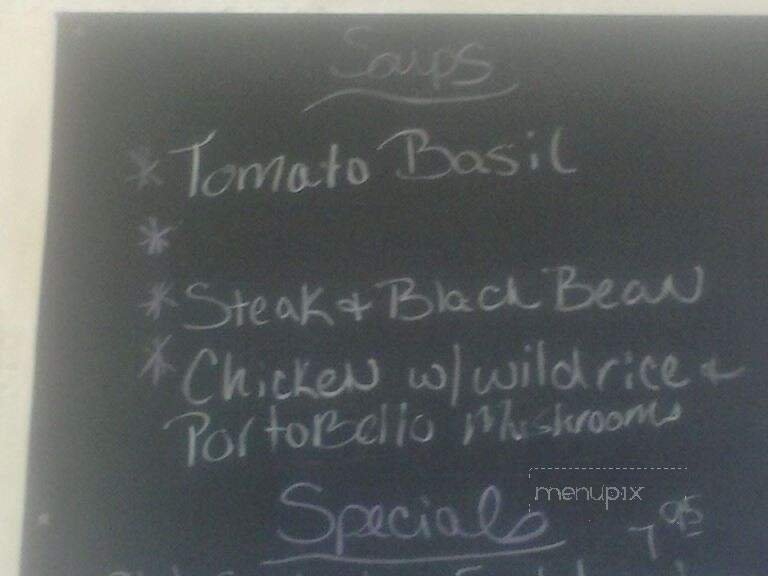 Soups
* Tomato Basil
*
* Steak & Black Bean
* Chicken w/ wild rice &
Portobello Mushrooms
menupix
Specials 7.95